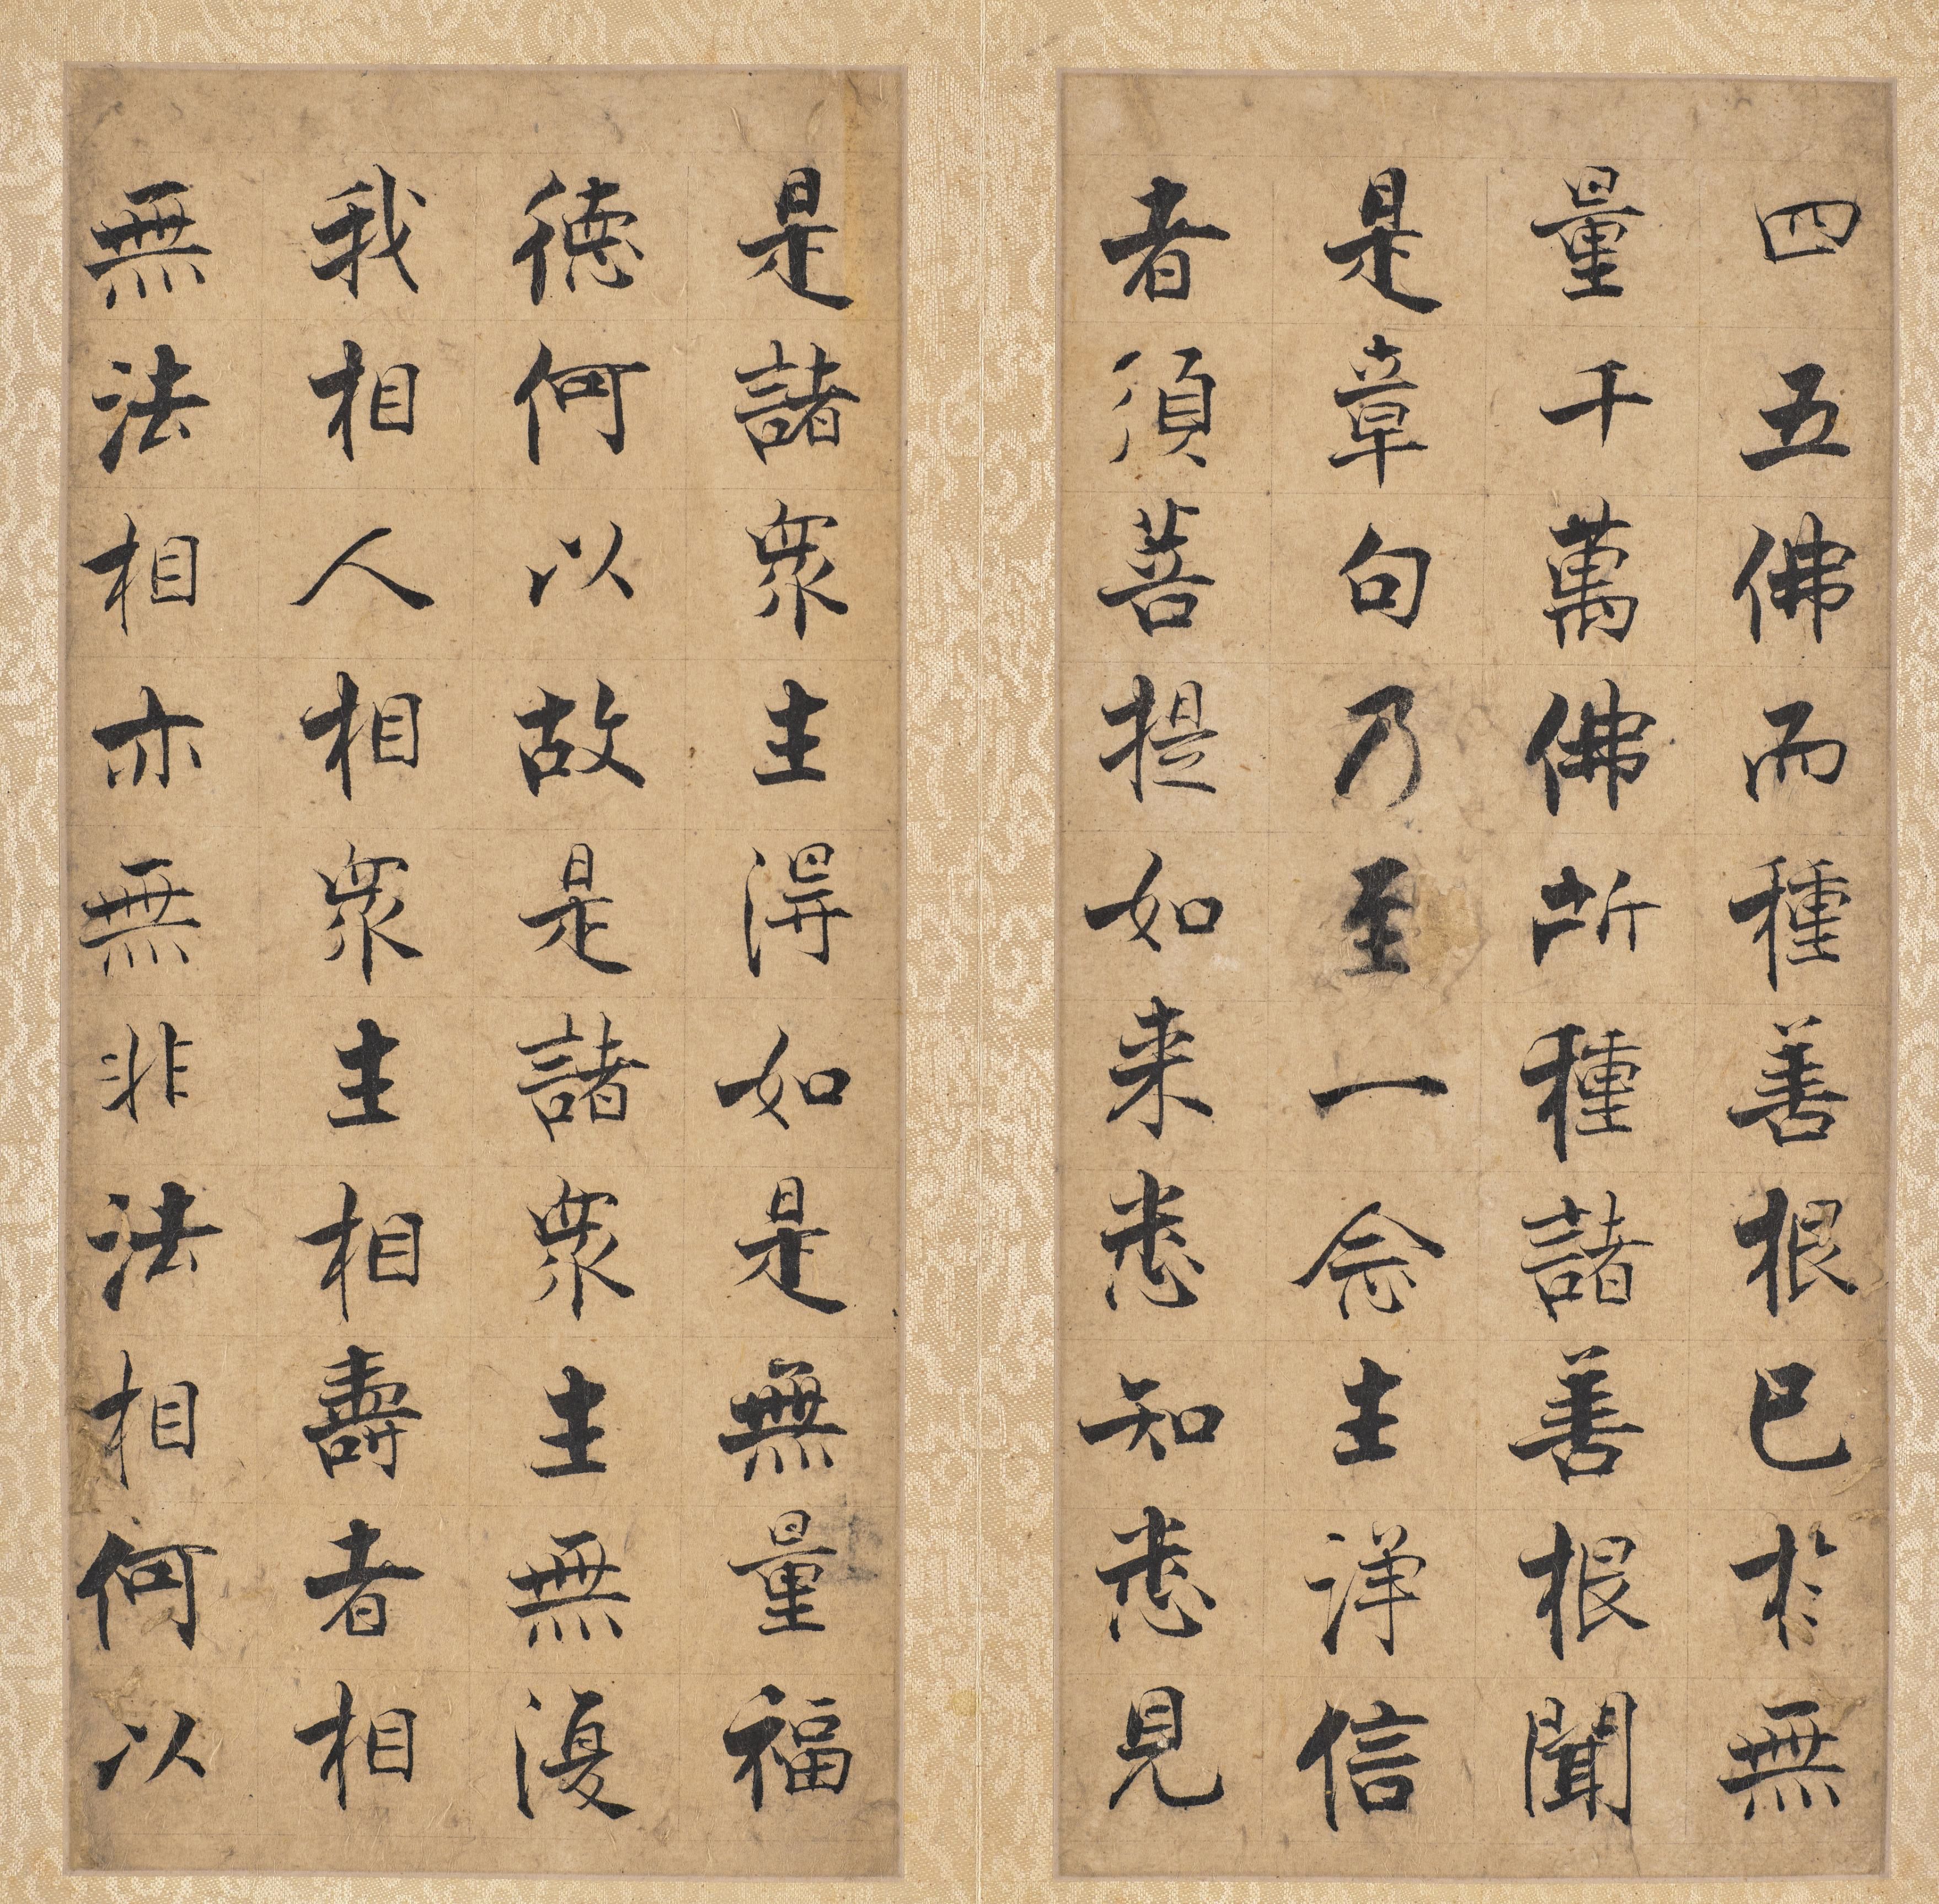 四五佛而種善根已於無
量千萬佛所種諸善根聞
是章句乃至一念生淨信
者須菩提如来悉知悉見
是諸眾生得如是無量福
德何以故是諸眾生無復
我相人相眾生相壽者相
無法相亦無非法相何以